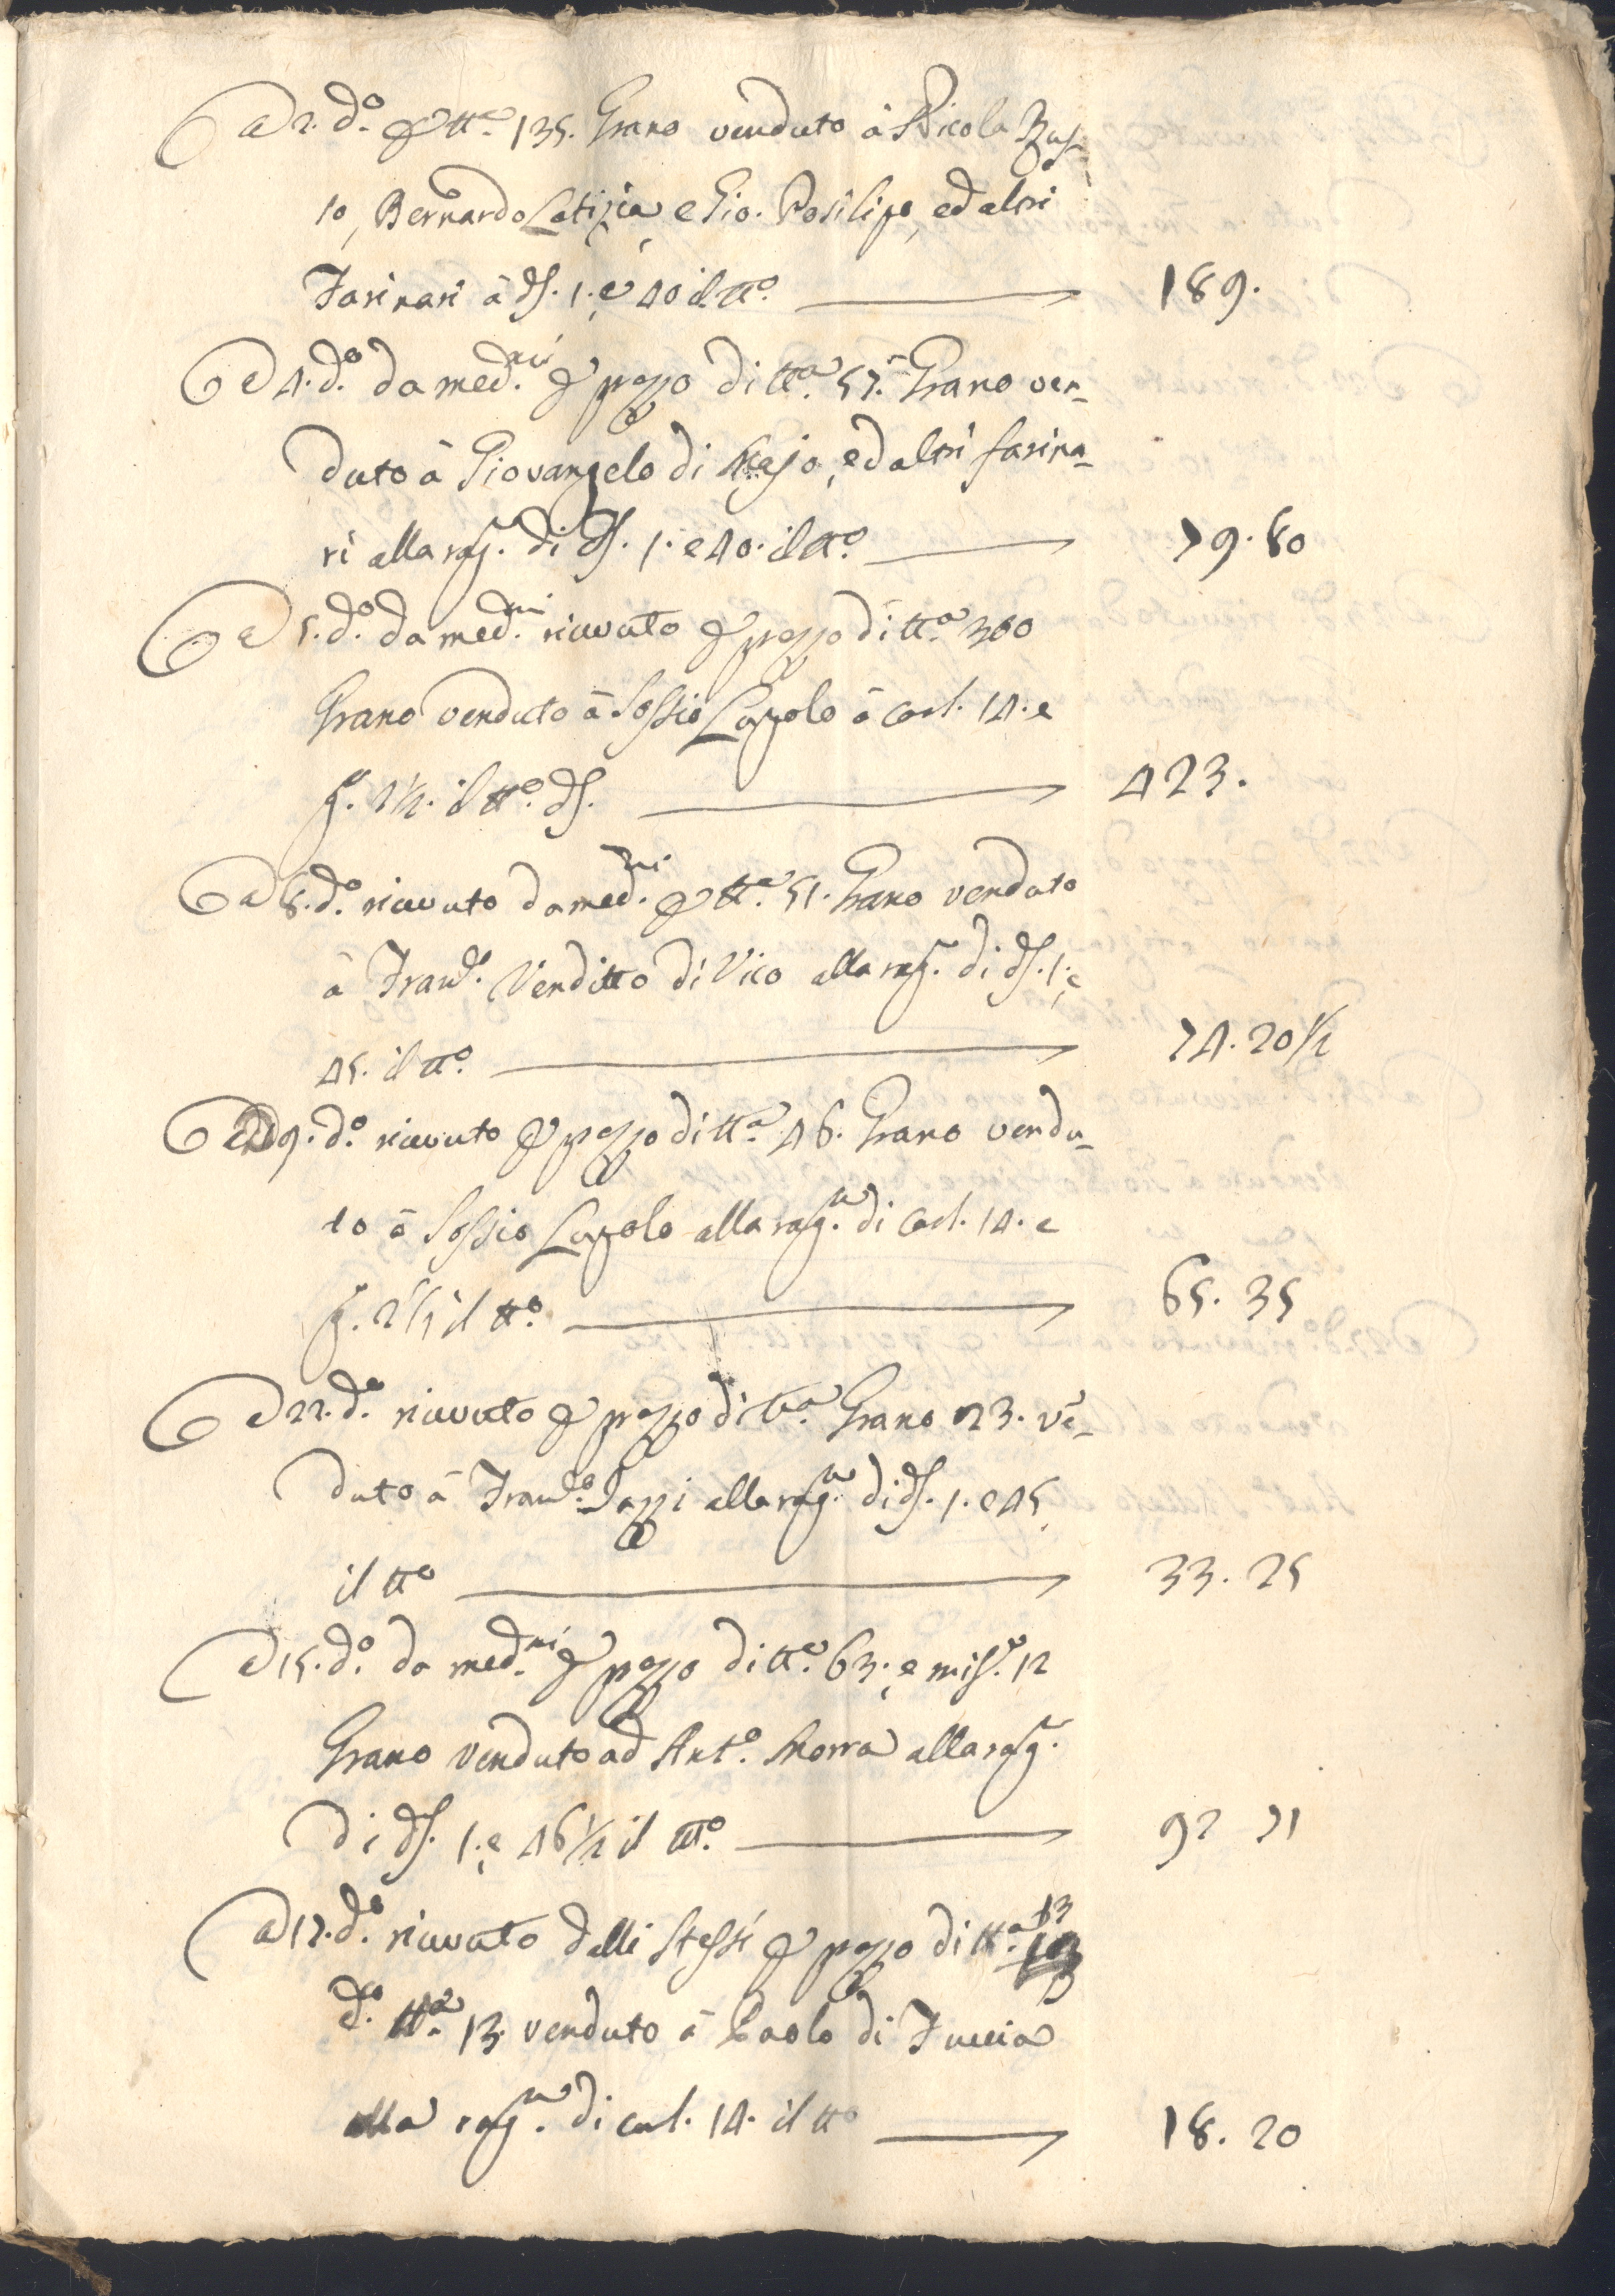 A 2. d.º p tt.ª 135. Grano venduto à Nicola Rus-
so, Bernardo Latizia e Gio. Posilipo, ed altri
Farinari à d.ti 1. e 40 il tt.º 189.
A 4. d.º da med.mi p prezzo di tt.ª 57. Grano ven-
duto à Giovangelo di, ed altri farina-
ri alla rag. di d.ti 1. e 40. il tt.º 79. 80
A 5. d.º da med.mi ricevuto p prezzo di tt.ª 300
Grano venduto à Sossio Lupolo à carl. 14. e
g. 2½. il tt.º d.ti 423.
A 8. d.º ricevuto da med.mi p tt.ª 51. Grano venduto
à Fran.co Venditto di Vico alla rag. di d.ti 1. e
45. il tt.º 74. 20½
A 9. d.º ricevuto p prezzo di tt.ª 46. Grano vendu-
to à Sossio Lupolo alla rag.ª di carl. 14. e
g. 2 il tt.º 65. 35
A d.º ricevuto p prezzo di tt.ª Grano 23. vē-
duto à Fran.co Iazzi alla rag.ª di d.ti 1. e 45
il tt.º 33. 25
A 15. d.º da med.mi p prezzo di tt.ª 63. e mis.e 12
Grano venduto ad Ant.º Morra alla rag.
di d.ti 1. e 46½ il tt.º 92 71
A 17. d.º ricevuto dalli stessi p prezzo di tt.ª 13
d.º tt.ª 13. venduto à Paolo di Fuccia
alla rag.ª di carl. 14. il tt.º 18. 20